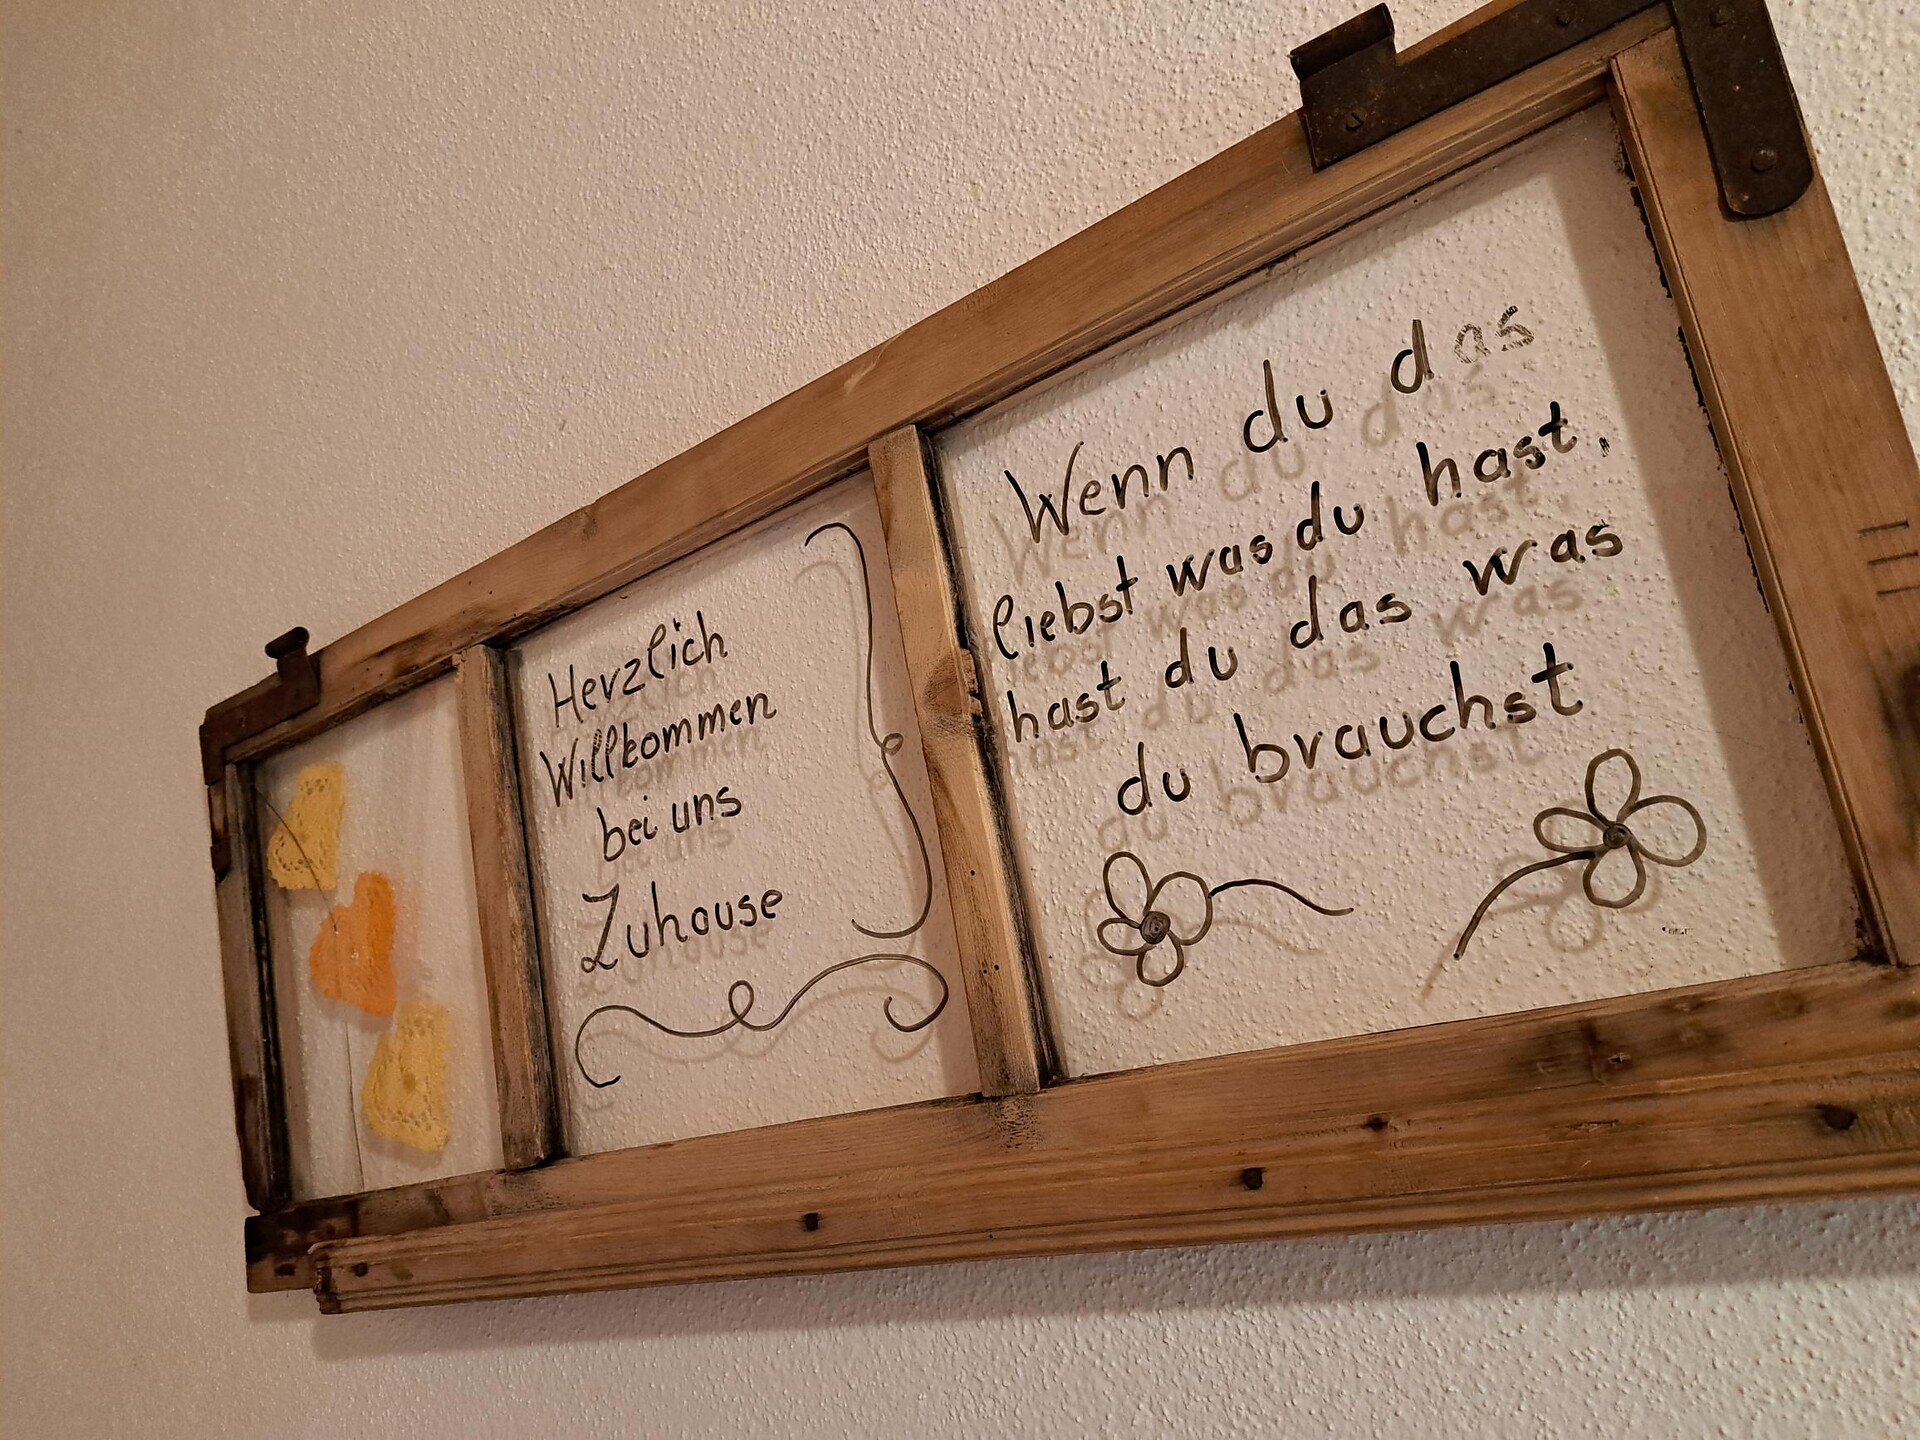 Herzlich
Willkommen
bei uns
Zuhause
Wenn du das
liebst was du hast,
hast du das was
du brauchst